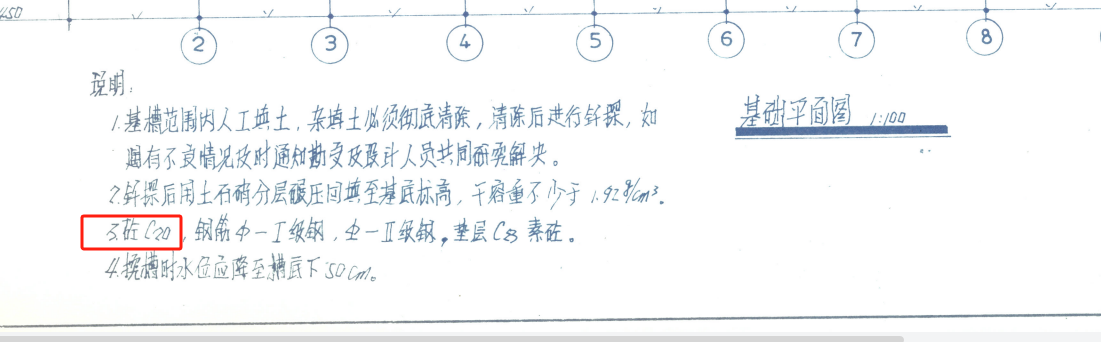 450
2 3 4 5 6 7 8
说明:
基础平面图 1:100
1.基槽范围内人工填土,杂填土必须彻底清除,清除后进行钎探,如
遇有不良情况及时通知勘受及设计人员共同研究解决。
2.钎探后用土石硝分层碾压回填至基底标高,干容重不少于1.92g/cm³。
3.砼C20,钢筋Φ—I级钢,Φ—II级钢,垫层 素砼。
4.挖槽时水位应降至槽底下50cm。